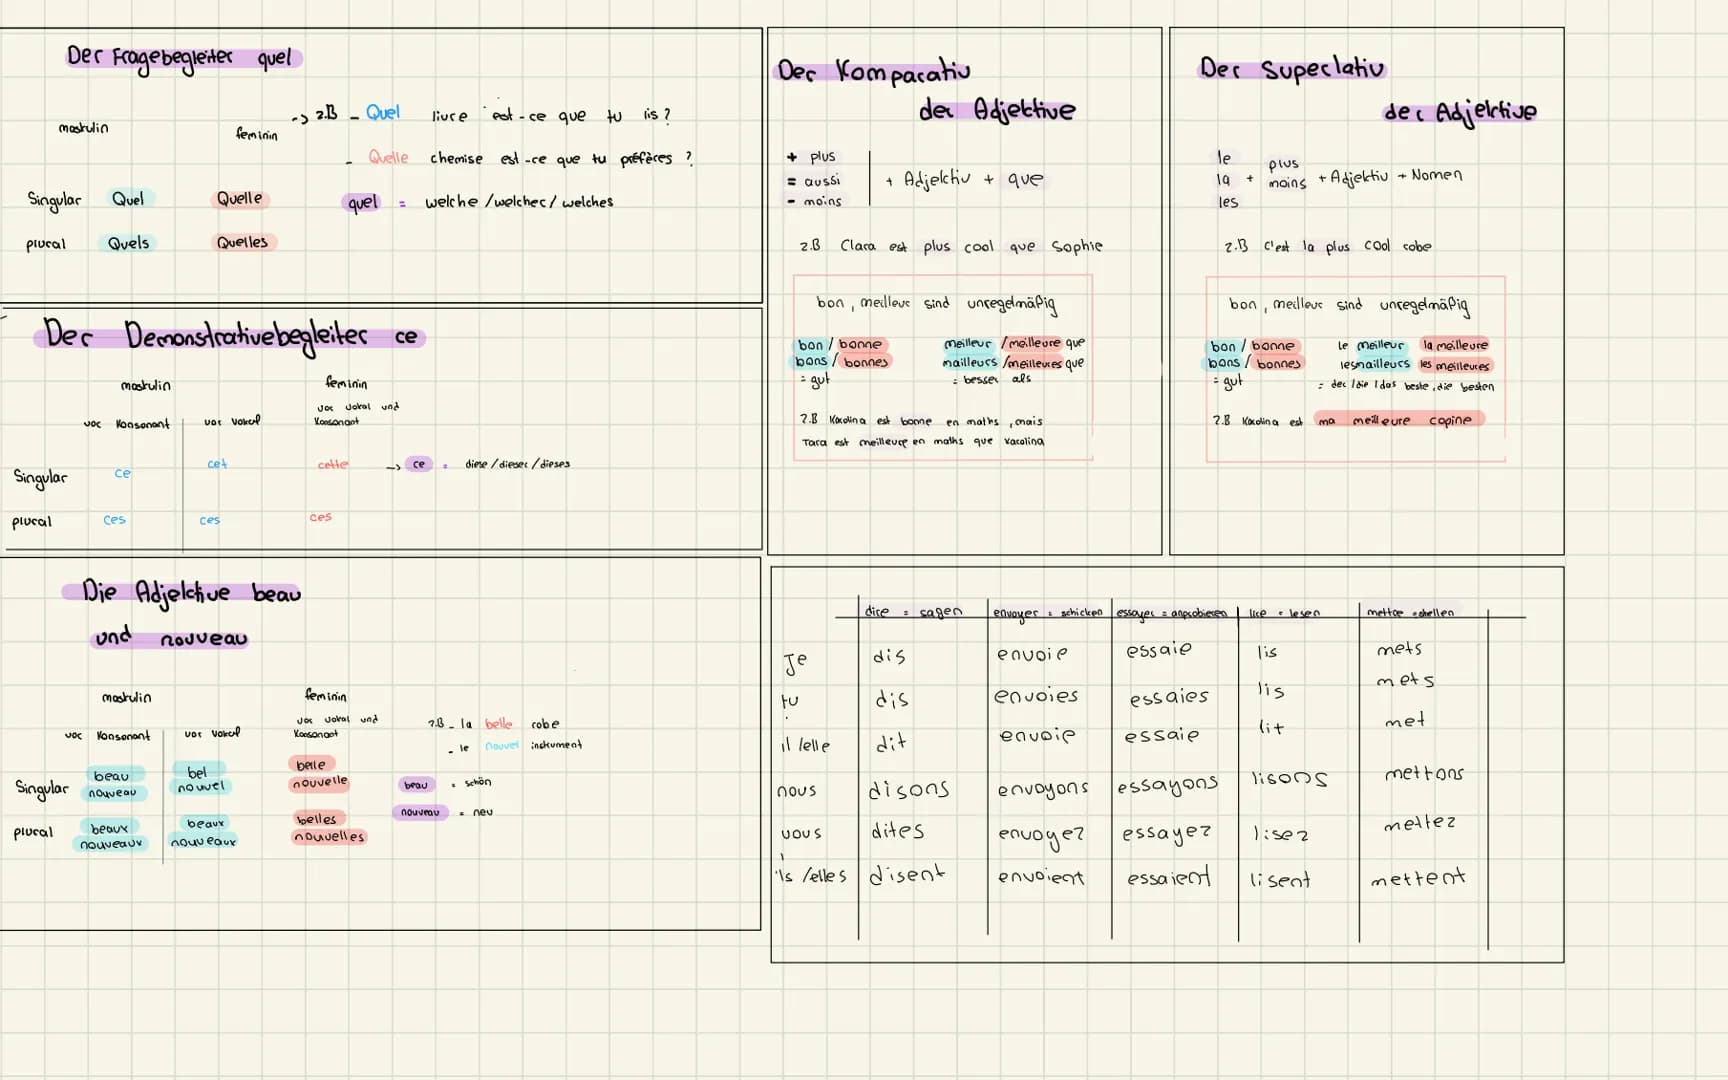 Der Fragebegleiter quel
maskulin feminin
Singular Quel Quelle
plural Quels Quelles
-> z.B - Quel livre est-ce que tu lis?
- Quelle chemise est-ce que tu préfères ?
quel = welche /welcher/ welches
Der Demonstrativebegleiter ce
maskulin feminin
vor Konsonant vor Vokal vor Vokal und Konsonant
Singular ce cet cette
plural ces ces ces
-> ce = diese/dieser/dieses
Die Adjektive beau
und nouveau
maskulin feminin
vor Konsonant vor Vokal vor Vokal und Konsonant
Singular beau bel belle
nouveau nouvel nouvelle
plural beaux beaux belles
nouveaux nouveaux nouvelles
z.B - la belle robe
- le nouvel instrument
beau = schön
nouveau = neu
Der Komparativ
der Adjektive
+ plus
= aussi + Adjektiv + que
- moins
z.B Clara est plus cool que Sophie
bon, meilleur sind unregelmäßig
bon / bonne meilleur /meilleure que
bons / bonnes mailleurs /meilleures que
= gut = besser als
z.B Karolina est bonne en maths, mais
Tara est meilleure en maths que Karolina
Der Superlativ
der Adjektive
le plus
la + moins + Adjektiv + Nomen
les
z.B c'est la plus cool robe
bon, meilleur sind unregelmäßig
bon / bonne le meilleur la meilleure
bons / bonnes les mailleurs les meilleures
= gut = der/die/das beste, die besten
z.B Karolina est ma meilleure copine
dire = sagen envoyer = schicken essayer = anprobieren lire = lesen mettre = stellen
Je dis envoie essaie lis mets
tu dis envoies essaies lis mets
il/elle dit envoie essaie lit met
nous disons envoyons essayons lisons mettons
vous dites envoyez essayez lisez mettez
ils/elles disent envoient essaient lisent mettent